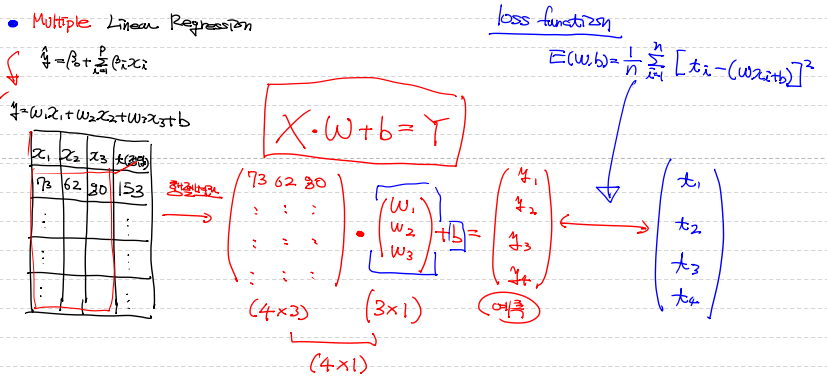 • Multiple Linear Regression
ŷ = β₀ + Σᵢ₌₁ᵖ βᵢxᵢ
y = w₁x₁ + w₂x₂ + w₃x₃ + b
x₁ x₂ x₃ t(정답)
73 62 80 153
: :
: :
: :
행렬변환
X · W + b = Y
(73 62 80 : : : : : : : : :) · (w₁ w₂ w₃) + b = (y₁ y₂ y₃ y₄)
(4×3) (3×1) 예측
(4×1)
loss function
E(w,b) = 1/n Σᵢ₌₁ⁿ [tᵢ - (wxᵢ + b)]²
(t₁ t₂ t₃ t₄)